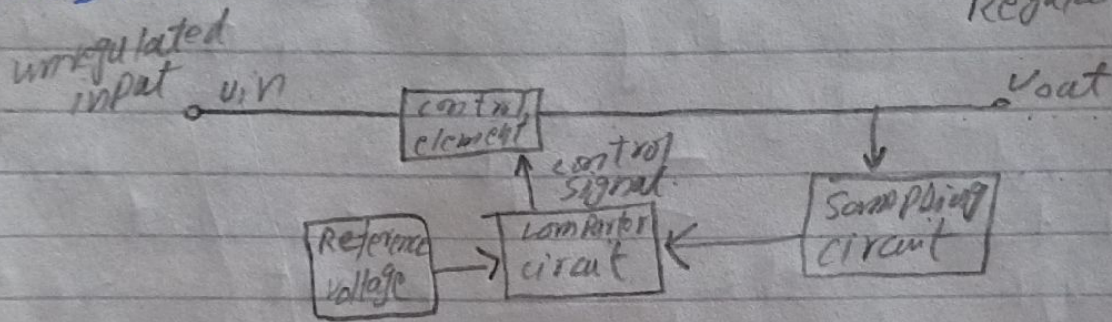 Regula
unregulated
input
Vin
Vout
control
element
control
signal.
Sampling
circuit
Reference
voltage
comparter
circuit